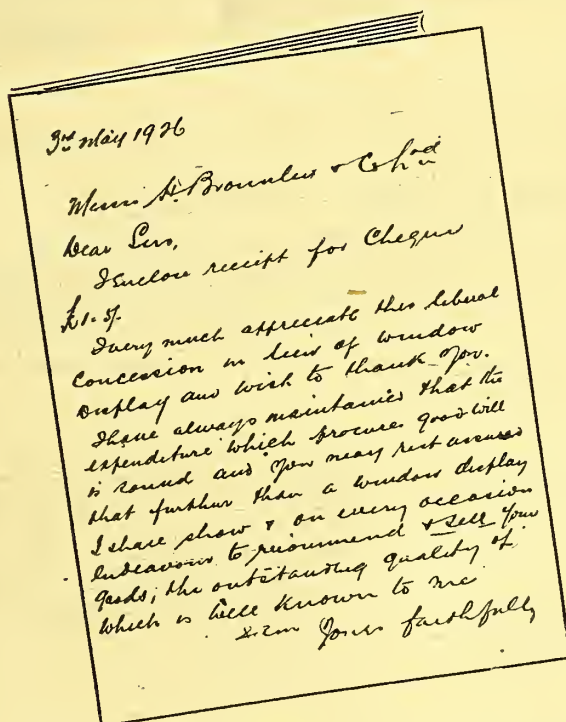 3rd May 1926
Messrs H. Bronnley & Co Ltd
Dear Sirs,
I Enclose receipt for Cheque
£1.5/.
I very much appreciate this liberal
concession in lieu of window
display and wish to thank you.
I have always maintained that the
expenditure which procures good will
is sound and you may rest assured
that further than a window display
I shall show & on every occasion
Endeavour to recommend & Sell your
goods; the outstanding quality of
which is well known to me
Yours faithfully